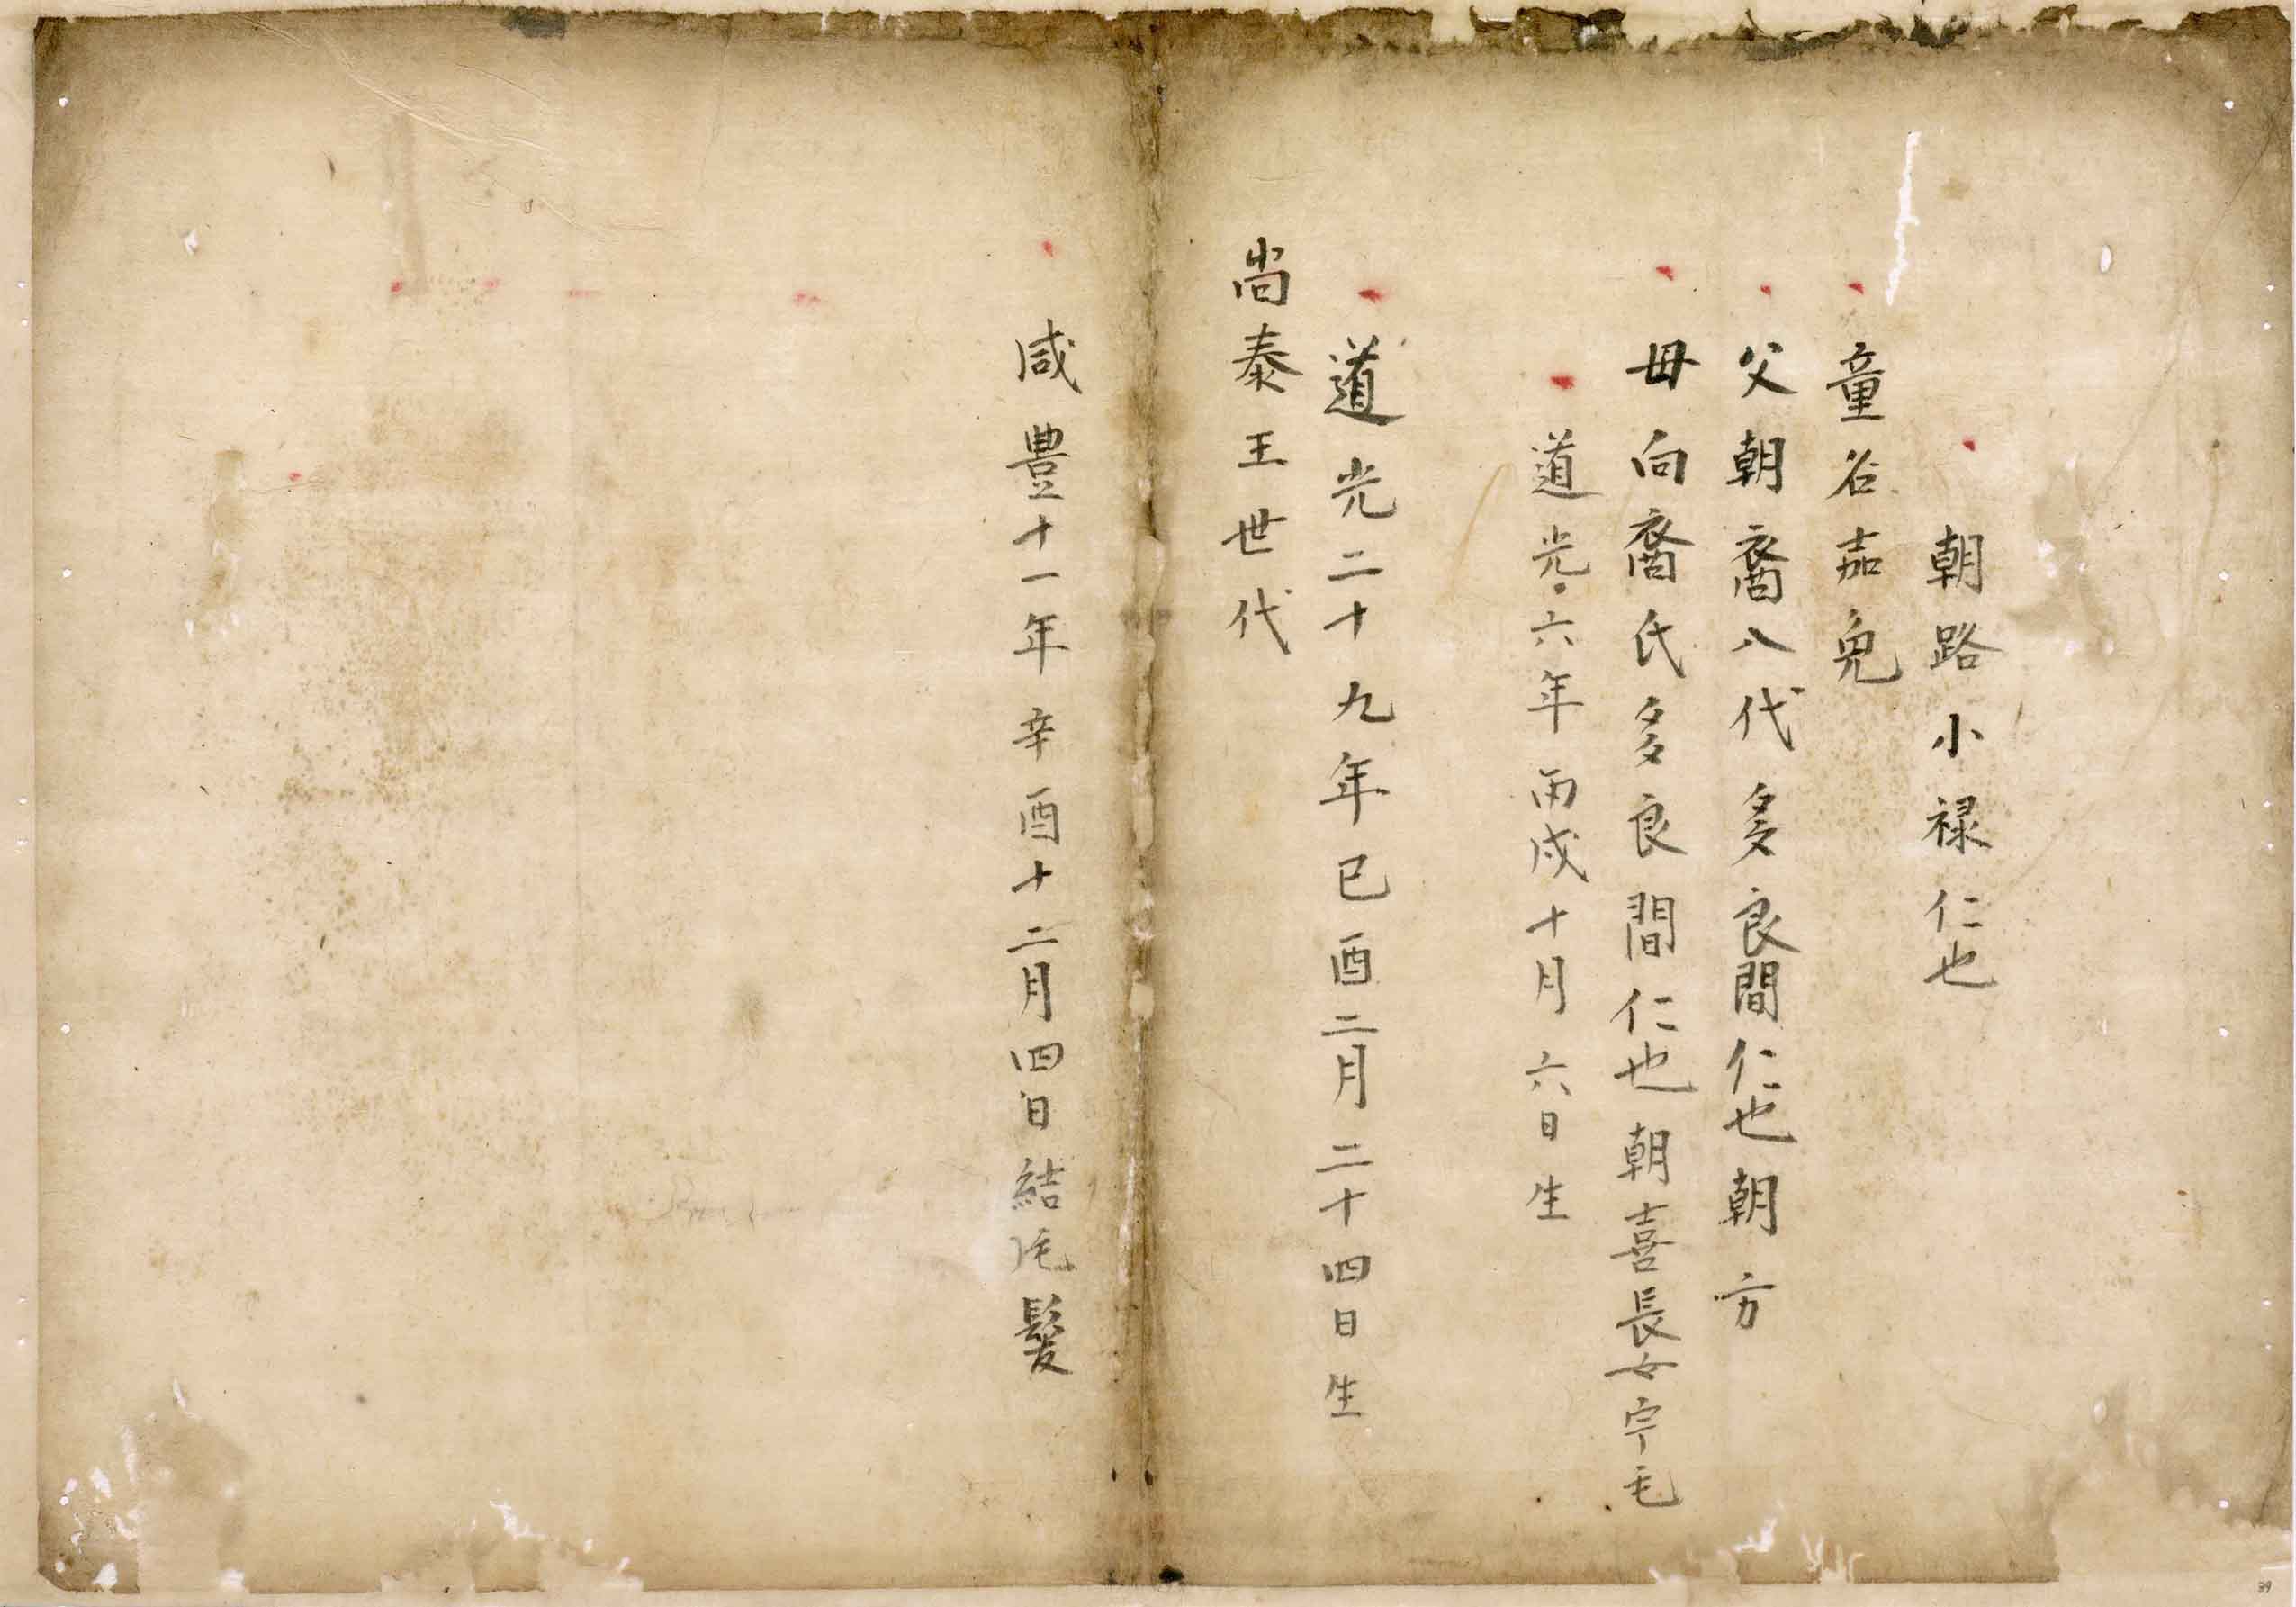 朝路小禄仁也
童名嘉免
父朝裔八代多良間仁也朝方
母向裔氏多良間仁也朝喜長女宇毛
道光六年丙戌十月六日生
道光二十九年己酉二月二十四日生
尚泰王世代
咸豊十一年辛酉十二月四日結髮
39